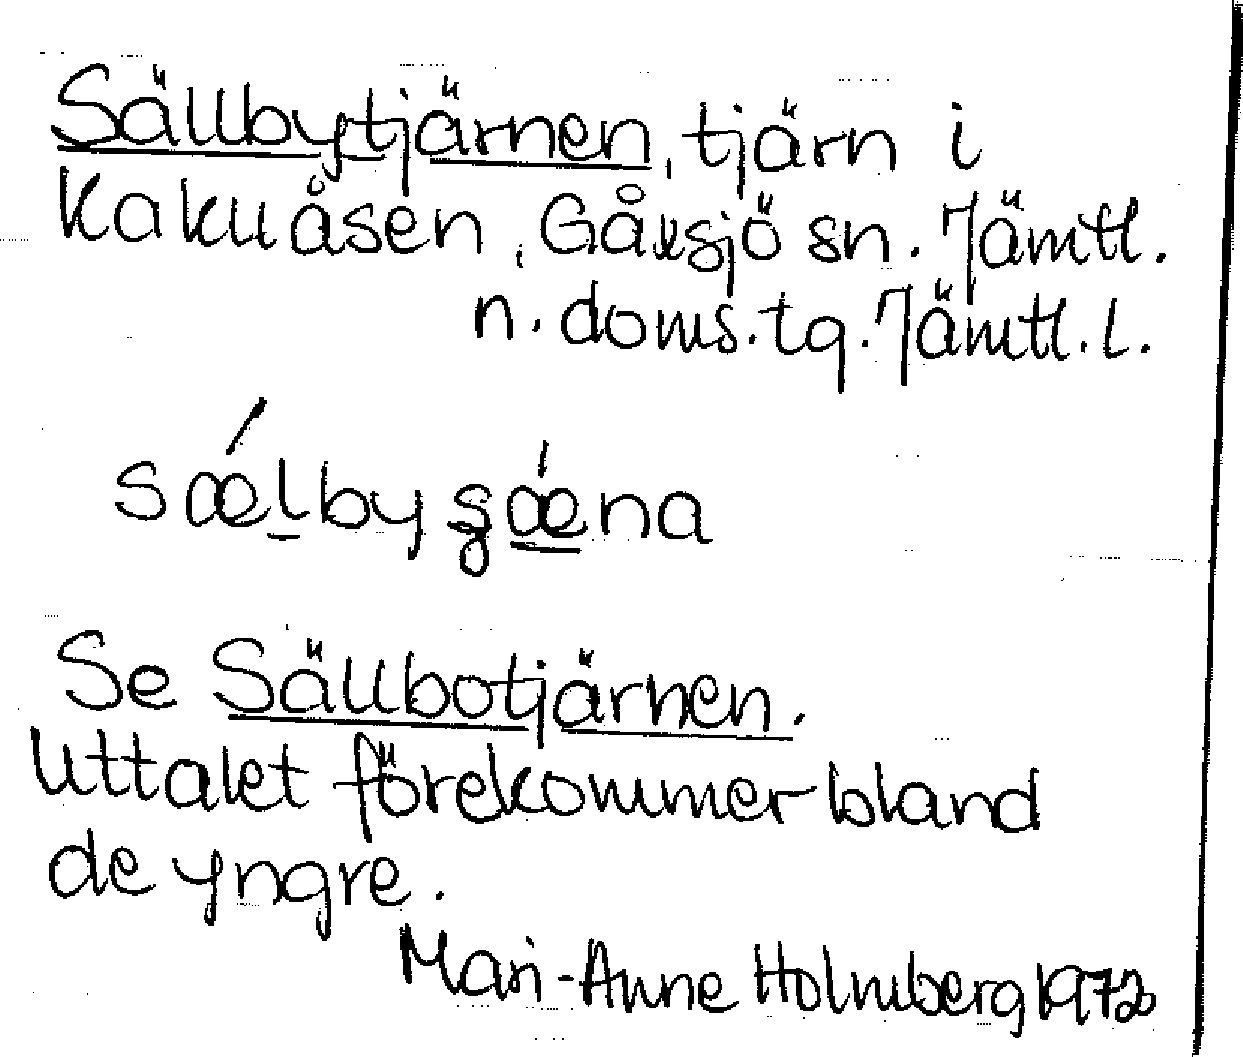 Sällbytjärnen, tjärn i
Kakuåsen, Gåxsjö sn. Jämtl.
n. doms. tg. Jämtl. l.
sǽl̲by ʂǽ̲na
Se Sällbotjärnen.
Uttalet förekommer bland
de yngre.
Mari-Anne Holmberg 1972